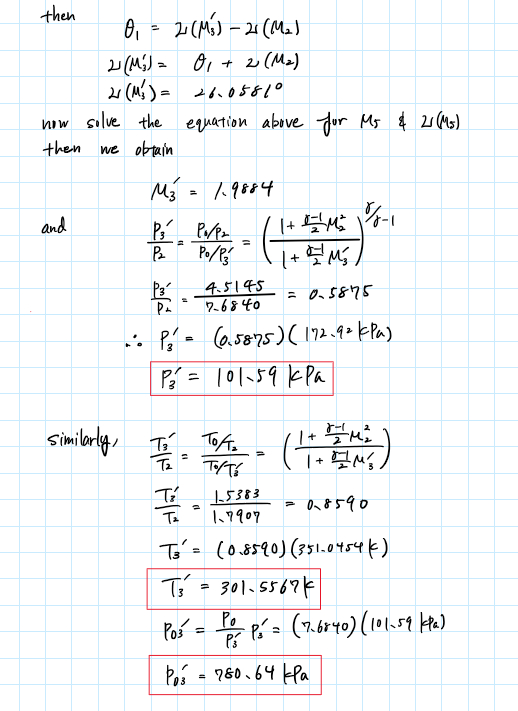 then
θ₁ = ν(M₃′) − ν(M₂)
ν(M₃′) = θ₁ + ν(M₂)
ν(M₃′) = 26.0581°
now solve the equation above for M₅ & ν(M₅)
then we obtain
M₃′ = 1.9884
and P₃′/P₂ = (P₀/P₂)/(P₀/P₃′) = ((1 + (γ−1)/2 M₂²)/(1 + (γ−1)/2 M₃′))^(γ/γ−1)
P₃′/P₂ = 4.5145/7.6840 = 0.5875
∴ P₃′ = (0.5875)(172.92 kPa)
P₃′ = 101.59 kPa
similarly, T₃′/T₂ = (T₀/T₂)/(T₀/T₃′) = ((1 + (γ−1)/2 M₂²)/(1 + (γ−1)/2 M₃′))
T₃′/T₂ = 1.5383/1.7907 = 0.8590
T₃′ = (0.8590)(351.0454 K)
T₃′ = 301.5567 K
P₀₃′ = P₀/P₃′ P₃′ = (7.6840)(101.59 kPa)
P₀₃′ = 780.64 kPa